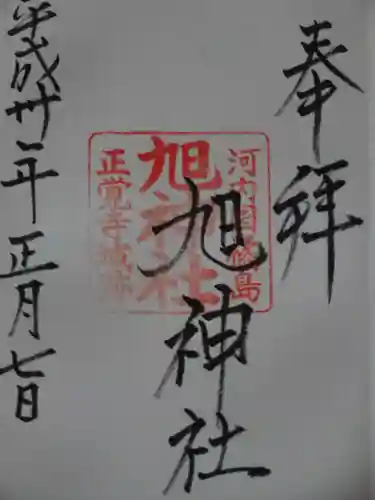 奉拝
旭神社
平成卅一年正月七日
河内国
島
旭神社
正覚寺城跡